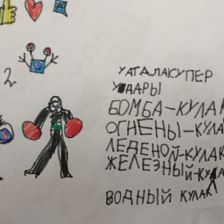 2
УАТАЛАКУПЕР
УДАРЫ
БОМБА-КУЛАК
ОГНЕНЫ-КУЛА
ЛЕДЕНОЙ-КУЛАК
ЖЕЛЕЗНЫЙ-КУЛА
ВОДНЫЙ КУЛАК